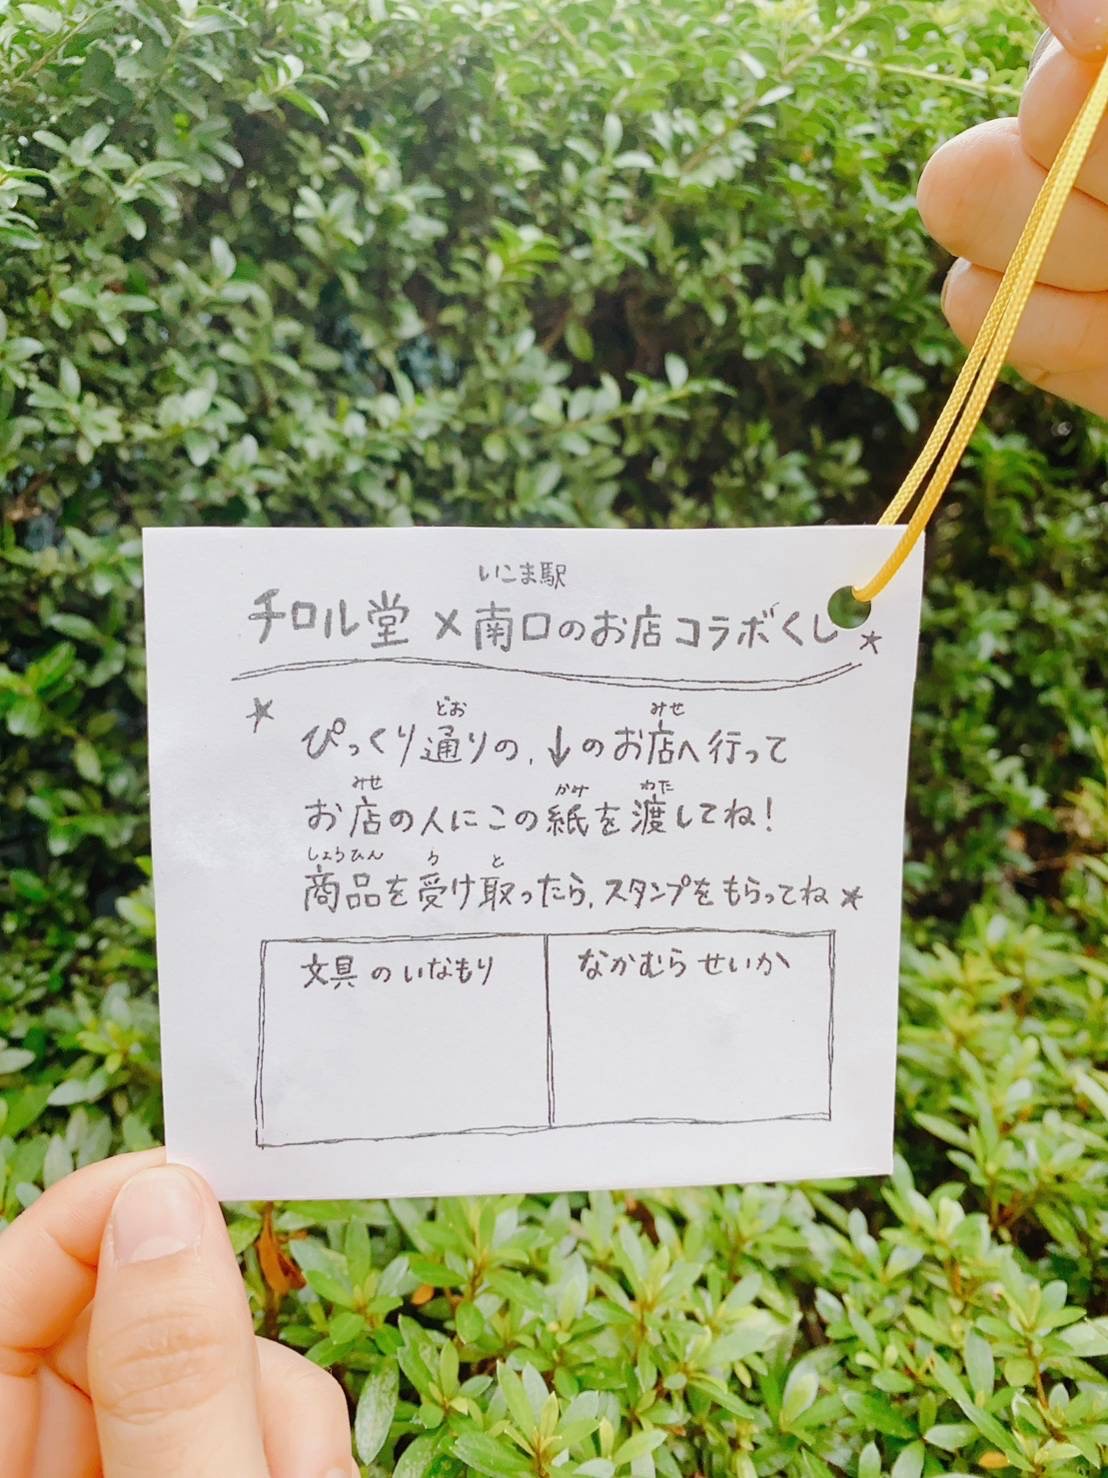 いこま駅
チロル堂×南口のお店コラボくじ★
どお みせ
★ぴっくり通りの、↓のお店へ行って
みせ かみ わた
お店の人にこの紙を渡してね!
しょうひん う と
商品を受け取ったら、スタンプをもらってね★
文具のいなもり
なかむらせいか